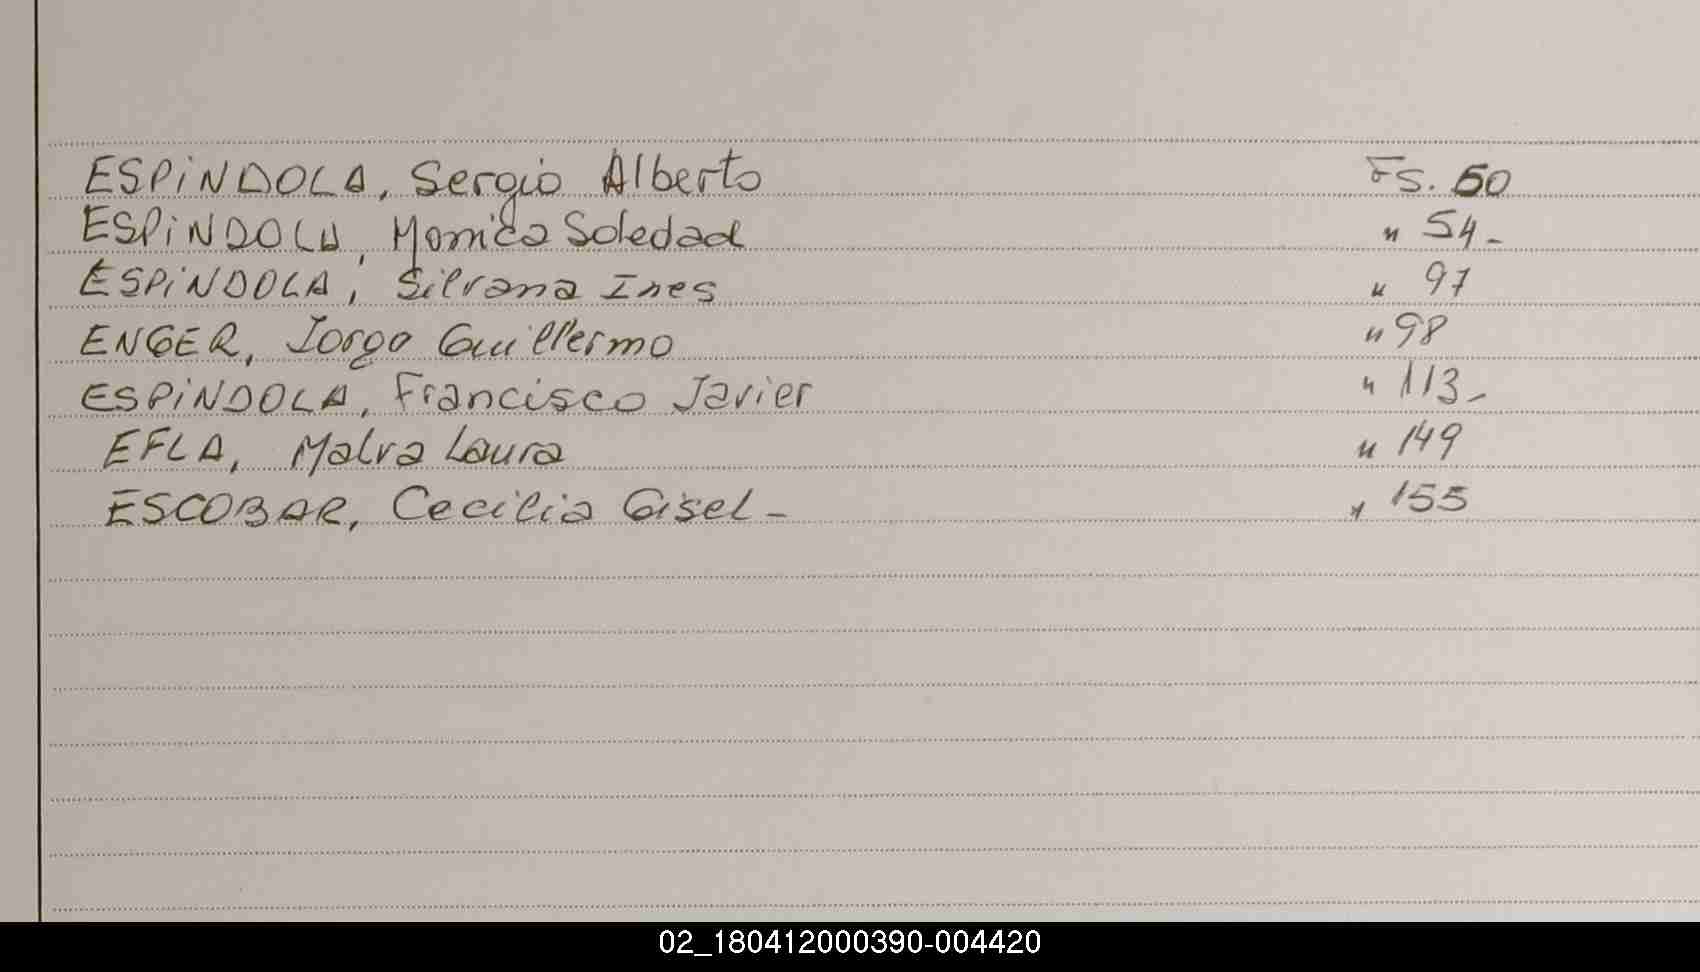 ESPiNDOLA, Sergio Alberto Fs. 50
ESPiNDOLA, Monica Soledad " 54-
ESPiNDOLA, Silvana Ines " 97
ENGER, Jorge Guillermo " 98
ESPiNDOLA, Francisco Javier " 113-
EFLA, Malva Laura " 149
ESCOBAR, Cecilia Gisel- " 155
02_180412000390-004420